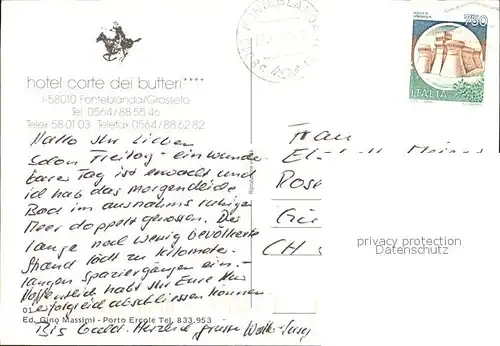 hotel corte dei butteri****
I-58010 Fonteblanda/Grosseto
Tel 0564/88 55 46
Telex 58 01 03 Telefax 0564/88 62 82
Hallo Ihr Lieben
Schon Freitag - ein wunder-
barer Tag ist erwacht und
ich hab das morgendliche
Bad im ausnahmsw ruhigen
Meer doppelt genossen. Der
lange noch wenig bevölkerte
Strand lädt zu kilometer-
langen Spaziergängen ein.-
Hoffentlich habt Ihr Eure
erfolgreich abschliessen können
Ed. Gino Massimi - Porto Ercole Tel. 833.953
Bis bald. Herzlich grüsse
Frau
CH
750
ITALIA
privacy protection
Datenschutz